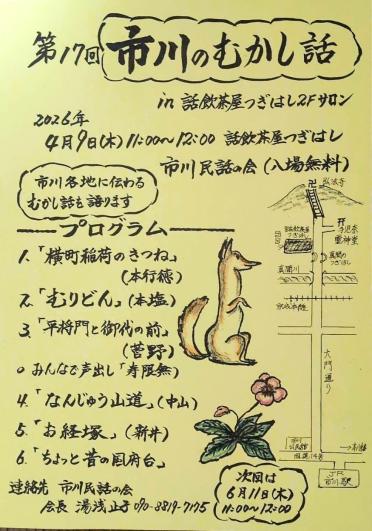 第17回 市川のむかし話
in 話飲茶屋つぎはし2Fサロン
2026年
4月9日(木) 11:00〜12:00 話飲茶屋つぎはし
市川民話の会 (入場無料)
市川各地に伝わる
むかし話を語ります
プログラム
1.「横町稲荷のきつね」
(本行徳)
2.「むりどん」(本塩)
3.「平将門と御代の前」
(菅野)
○ みんなで声出し「寿限無」
4.「なんじゅう山道」(中山)
5.「お経塚」(新井)
6.「ちょっと昔の国府台」
連絡先 市川民話の会
会長 湯浅止子 070-3819-7175
次回は
6月11日(木)
11:00〜12:00
弘法寺
手児奈
霊神堂
話飲茶屋
つぎはし
真間の
つぎはし
真間川
京成本線
大門通り
国道14号
JR
市川駅